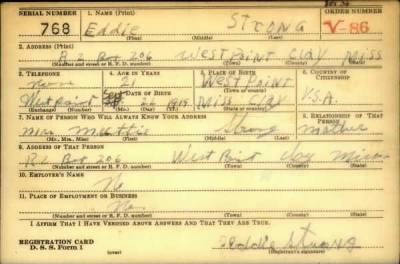 SERIAL NUMBER 1. NAME (Print) ORDER NUMBER
768 Eddie Strong V-86
(First) (Middle) (Last)
2. ADDRESS (Print)
R 2 Box 206 West Point Clay Miss
(Number and street or R. F. D. number) (Town) (County) (State)
3. TELEPHONE 4. AGE IN YEARS 5. PLACE OF BIRTH 6. COUNTRY OF CITIZENSHIP
No 21 West Point
DATE OF BIRTH
West Point 26 1919 Miss Clay U.S.A.
(Exchange) (Number) (Mo.) (Day) (Yr.) (State or country)
7. NAME OF PERSON WHO WILL ALWAYS KNOW YOUR ADDRESS 8. RELATIONSHIP OF THAT PERSON
Strong mother
(Mr., Mrs., Miss) (First) (Middle) (Last)
9. ADDRESS OF THAT PERSON
R 2 Box 206 West Point Clay Miss
(Number and street or R. F. D. number) (Town) (County) (State)
10. EMPLOYER'S NAME
No
11. PLACE OF EMPLOYMENT OR BUSINESS
No
(Number and street or R. F. D. number) (Town) (County) (State)
I AFFIRM THAT I HAVE VERIFIED ABOVE ANSWERS AND THAT THEY ARE TRUE.
REGISTRATION CARD
D. S. S. Form 1 (over) Eddie Strong
(Registrant's signature)